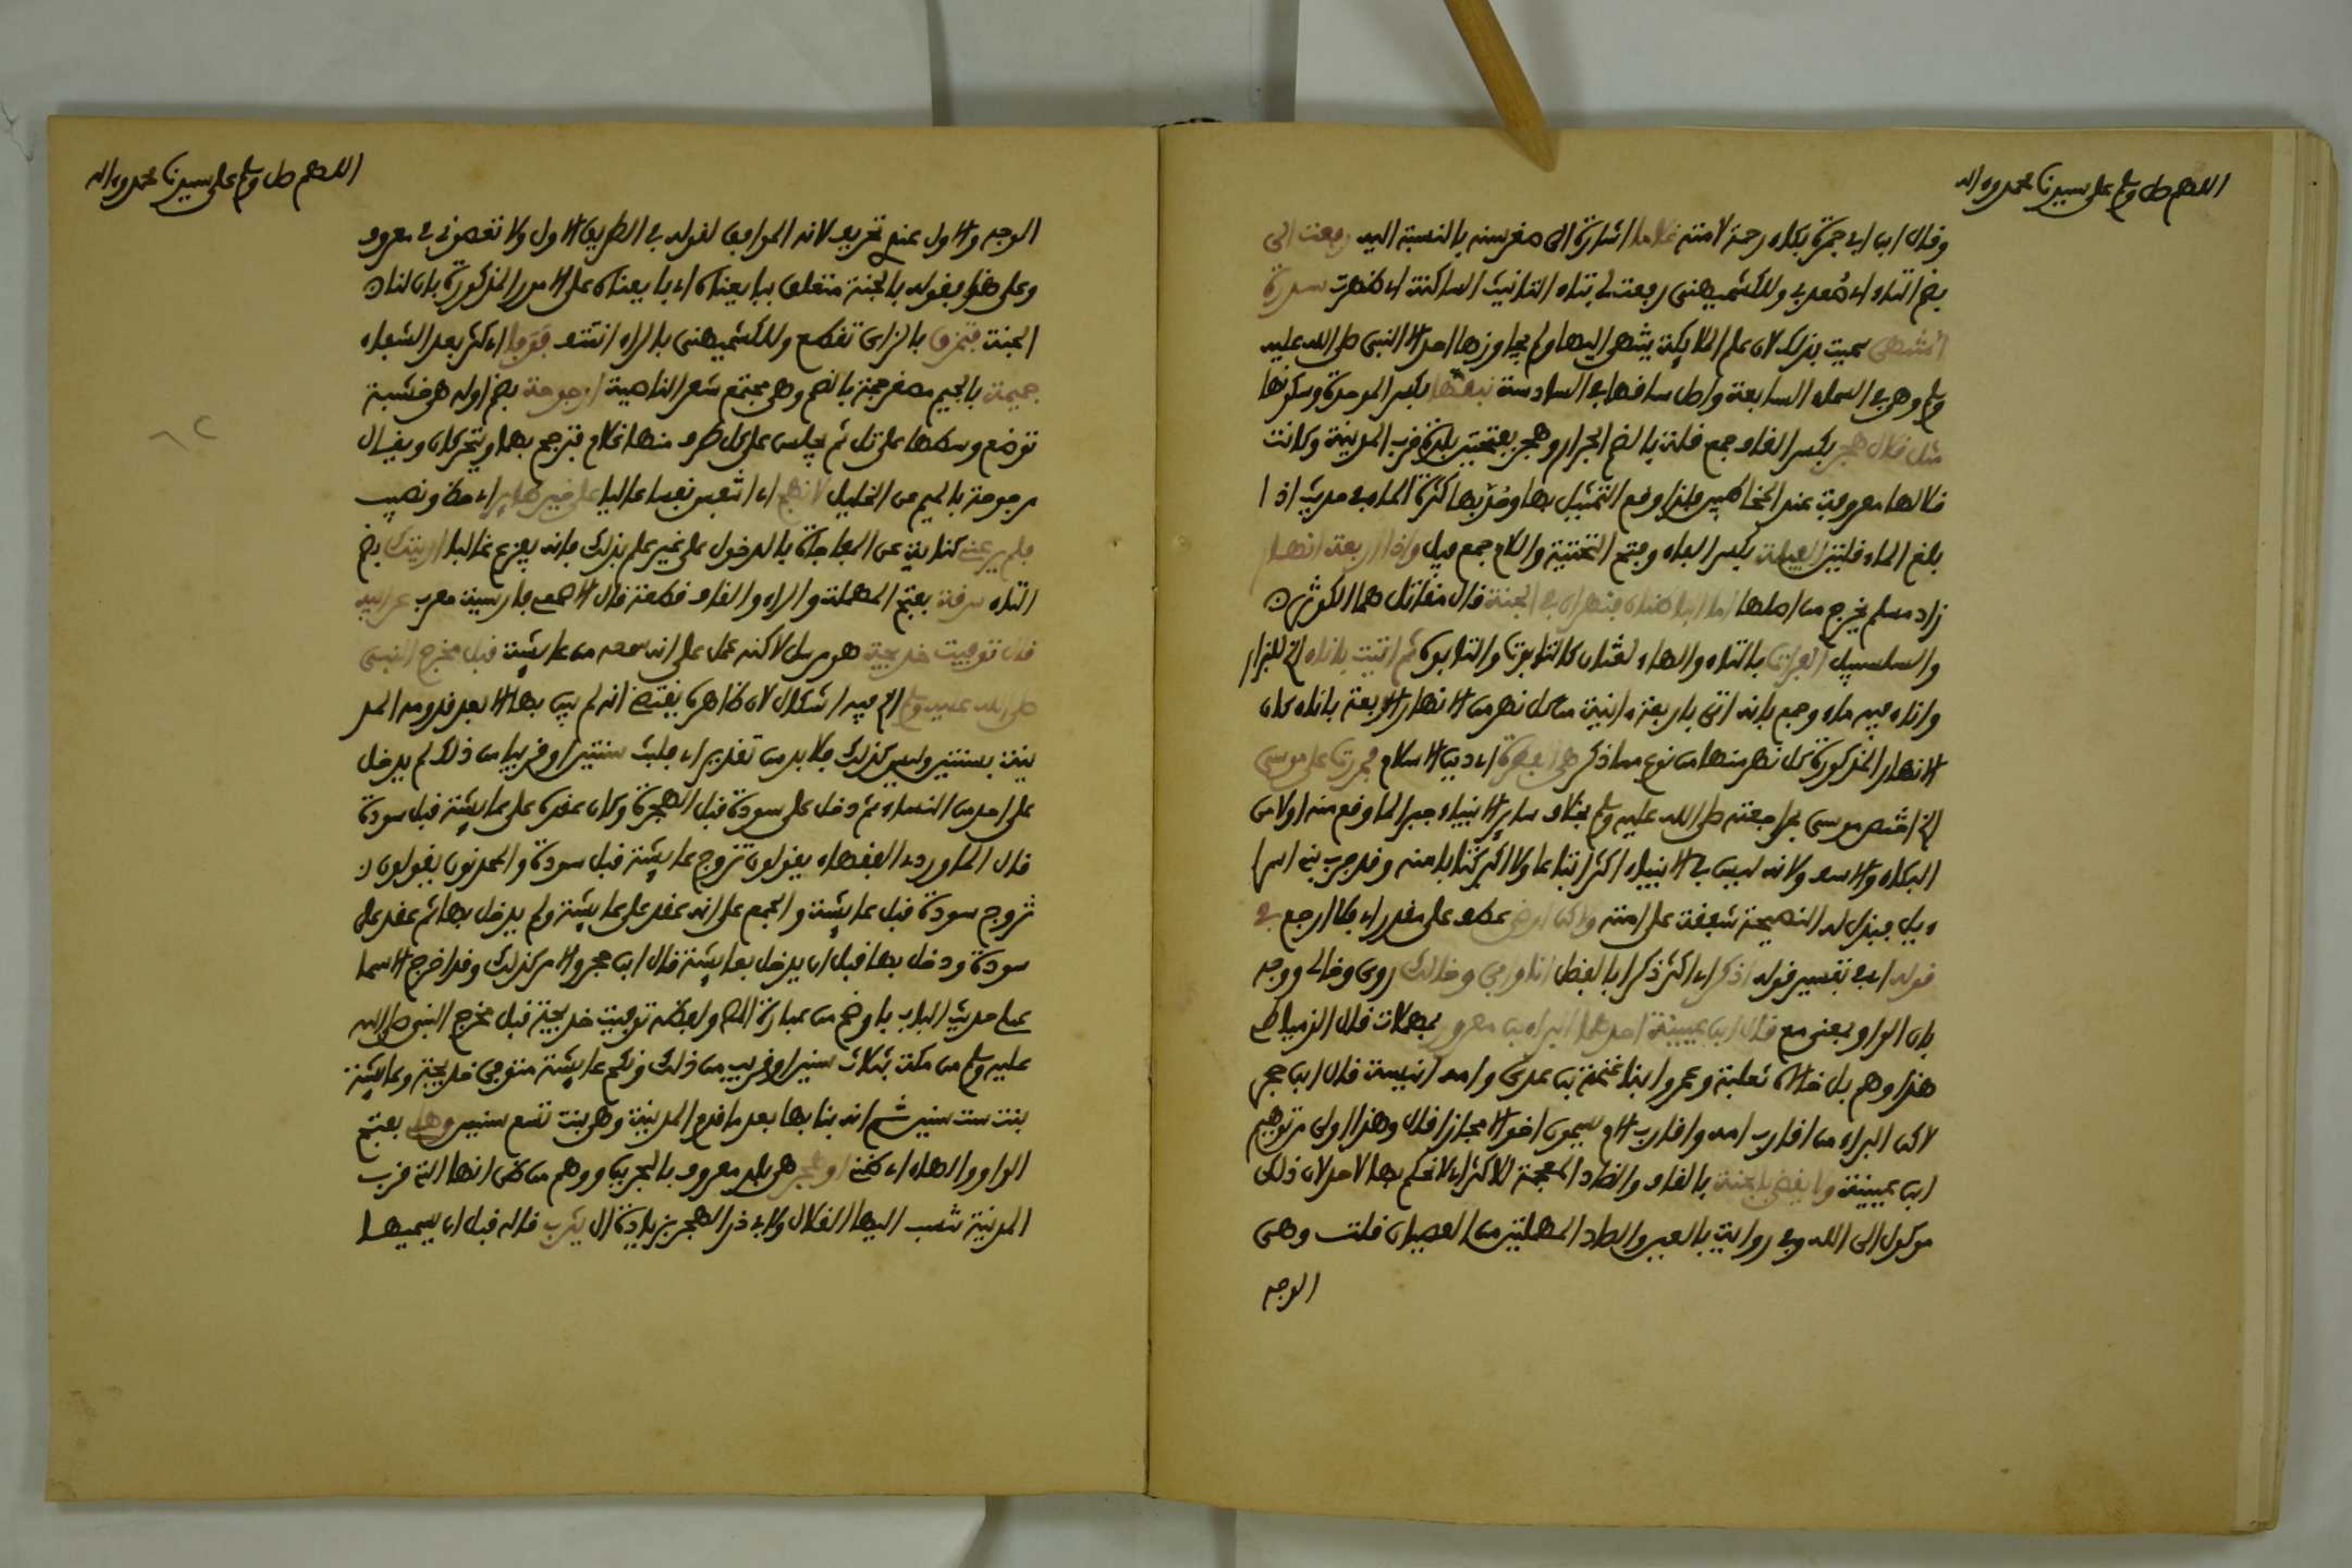 اللهم صل وسلم على سيدنا محمد وءاله
وقال ابن ابي جمرة بكاء رحمة لامته غلاما اشارة الى صغر سنه بالنسبة اليه رفعت الى
بضم التاء اي قدمي وللكشميهني رفعت لي بتاء التانيث الساكنة اي ظهرت سدرة
المنتهى سميت بذلك لان علم الملائكة ينتهي اليها ولم يجاوزها احد الا النبي صلى الله عليه
وسلم وهي في السماء السابعة واصل ساقها في السادسة نبقها بكسر الموحدة وسكونها
مثل قلال هجر بكسر القاف جمع قلة بالضم الجرار وهجر بفتحتين بلدة قرب المدينة وكانت
قلالها معروفة عند المخاطبين فلذا وقع التمثيل بها وضُرب بها كثرة الماء في حديث اذا
بلغ الماء قلتين الفيلة بكسر الفاء وفتح التحتية واللام جمع فيل واذا اربعة انهار
زاد مسلم يخرج من اصلها اما الباطنان فنهران في الجنة قال مقاتل هما الكوثر
والسلسبيل الفرات بالتاء والهاء لغتان كالتابوت والتابوه ثم اتيت باناء الخ للبزار
واناء فيه ماء وجمع بانه اتي باربعة ءانية من كل نهر من الانهار الاربعة باناء كان
الانهار المذكورة كل نهر منها من نوع مما ذكر هي الفطرة اي دين الاسلام فمررت على موسى
الخ اختص موسى بمراجعته صلى الله عليه وسلم بخلاف ساير الانبياء جبرا لما وقع منه اولا من
البكاء والاسف ولانه ليس في الانبياء اكثر اتباعا ولا اكبر كتابا منه وقد جرب بني اسرا
ءيل فبذل له النصيحة شفقة على امته ولكن ارضى عطف على مقدر اي فلا ارجع في
قوله اي في تفسير قوله اذكر اي اكثر ذكرا بالفضل انا وابي وخالك روي وخالي ووجه
بان الواو بمعنى مع قال ابن عيينة احدهما البراء بن معرور بمهملات قال الدمياطي
هذا وهم بل خالاه ثعلبة وعمرو ابنا غنمة بن عدي وامه انيسة قال ابن حجر
لاكن البراء من اقارب امه واقارب الام يسمون اخوالا مجازا قال وهذا اولى من توهيم
ابن عيينة ولا يقضى بالجنة بالقاف والضاد المعجمة للاكثر اي لا نحكم بها لاحد لان ذلك
موكول الى الله وفي رواية بالعين والصاد المهملتين من العصيان قلت وهي
الوجه
اللهم صل وسلم على سيدنا محمد وءاله
الوجه والاول عندي تحريف لانه الموافق لقوله في الطريق الاول ولا تعصوني في معروف
وعلى هذا فقوله بالجنة متعلق ببايعناه اي بايعناه على الامور المذكورة بان لنا
الجنة فتمزق بالزاي تقطع وللكشميهني بالراء انتتف فوفا اي كثر بعد الشفاء
جميمة بالجيم مصغر جمة بالضم وهي مجتمع شعر الناصية ارجوحة بضم اوله هي خشبة
توضع وسطها على تل ثم يجلس على كل طرف منها غلام فترجح بهما ويتحركان ويقال
مرجوحة بالميم عن الخليل لانهج اي اتنفس نفسا عاليا على خير طاير اي حظ ونصيب
فلم يرعني كناية عن المفاجاة بالدخول على غير علم بذلك فانه يفزع غالبا اريتك بضم
التاء سرقة بفتح المهملة والراء والقاف قطعة قال الاصمعي فارسية معرب عن ابيه
قال توفيت خديجة هو مرسل لاكنه حمل على انه سمعه من عايشة قبل مخرج النبي
صلى الله عليه وسلم الخ فيه اشكال لان ظاهره يقتضي انه لم يبن بها الا بعد قدومه المد
ينة بسنتين وليس كذلك فلا بد من تقدير اي فلبث سنتين او قريبا من ذلك لم يدخل
على احد من النساء ثم دخل على سودة قبل الهجرة وكان عقده على عايشة قبل سودة
قال الماوردي الفقهاء يقولون تزوج عايشة قبل سودة والمحدثون يقولون
تزوج سودة قبل عايشة والجمع على انه عقد على عايشة ولم يدخل بها ثم عقد على
سودة ودخل بها قبل ان يدخل بعايشة قال ابن حجر والامر كذلك وقد اخرج الاسما
عيلي حديث الباب باوضح من عبارة المص ولفظه توفيت خديجة قبل مخرج النبي صلى الله
عليه وسلم من مكة بثلاث سنين او قريب من ذلك ونكح عايشة متوفى خديجة وعايشة
بنت ست سنين ثم انه بنا بها بعد ما قدم المدينة وهي بنت تسع سنين وهلي بفتح
الواو والهاء اي ظني او هجر هي بلد معروف بالبحرين ووهم من ظن انها التي قرب
المدينة تنسب اليها القلال ولابي ذر الهجر بزيادة ال يثرب قاله قبل ان يسميها